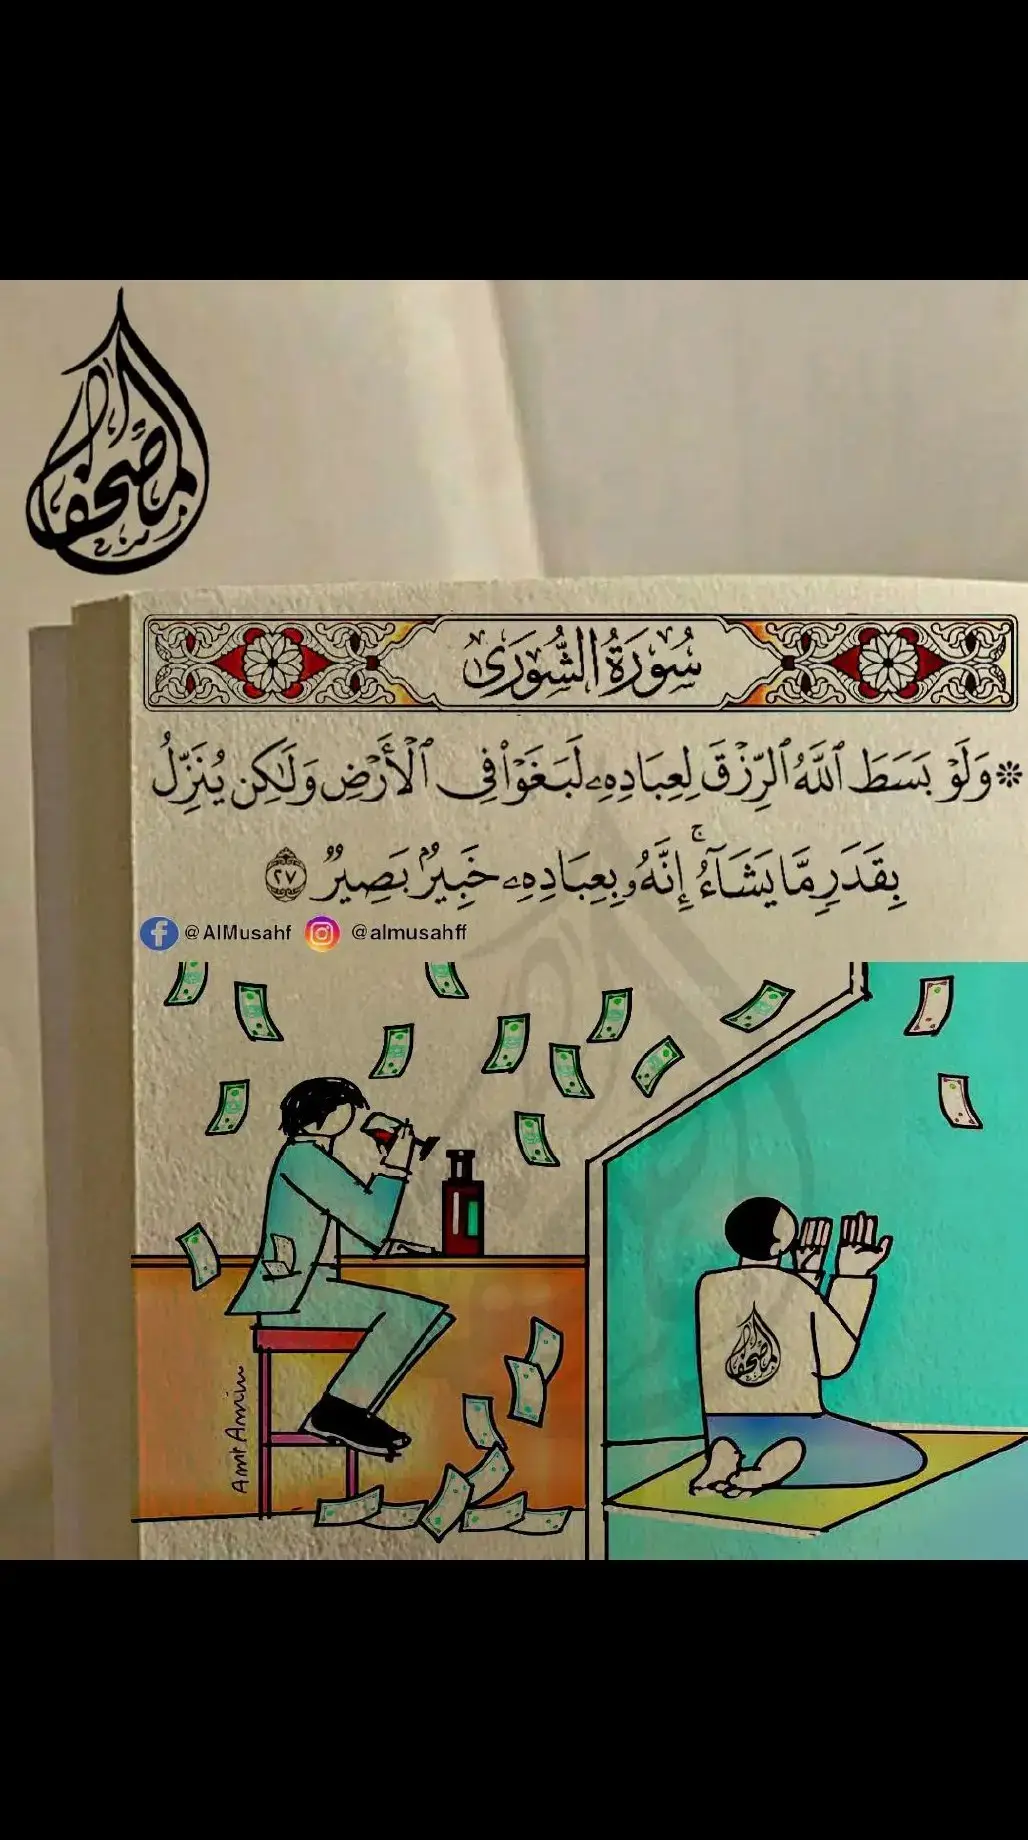 المصحف
سُورَةُ الشُّورَىٰ
۞ وَلَوْ بَسَطَ ٱللَّهُ ٱلرِّزْقَ لِعِبَادِهِۦ لَبَغَوْا۟ فِى ٱلْأَرْضِ وَلَٰكِن يُنَزِّلُ
بِقَدَرٍ مَّا يَشَآءُ ۚ إِنَّهُۥ بِعِبَادِهِۦ خَبِيرٌۢ بَصِيرٌ ٢٧
@AlMusahf @almusahff
Amr Amin
المصحف